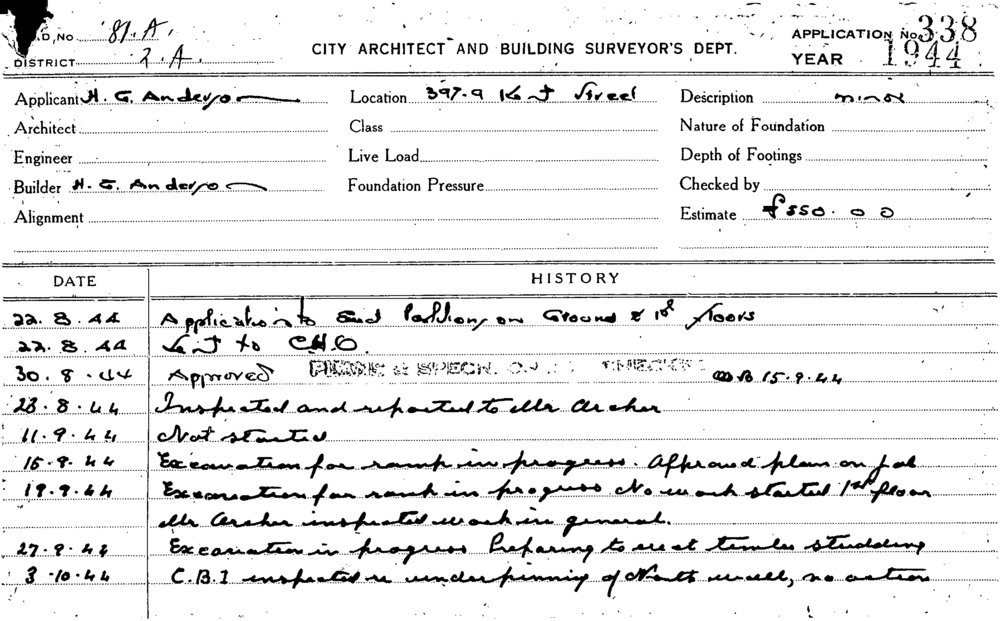 D. No 81.A.
DISTRICT 2.A.
CITY ARCHITECT AND BUILDING SURVEYOR'S DEPT.
APPLICATION No 338
YEAR 1944
Applicant H. G. Anderson Location 397-9 Kent Street Description minor
Architect Class Nature of Foundation
Engineer Live Load Depth of Footings
Builder H. G. Anderson Foundation Pressure Checked by
Alignment Estimate £550.0 0
DATE HISTORY
22.8.44 Application to Erect Partitions on Ground & 1st floors
22.8.44 Sent to C.H.O.
30.8.44 Approved & SPECN. CHECKED 15.9.44
23.8.44 Inspected and reported to Mr Archer
11.9.44 Not started
15.9.44 Excavation for ramp in progress. Approved plan on job
19.9.44 Excavation for ramp in progress No work started 1st floor
Mr Archer inspected work in general.
27.9.44 Excavation in progress Preparing to erect timber studding
3.10.44 C.B.I inspected re underpinning of North wall, no action